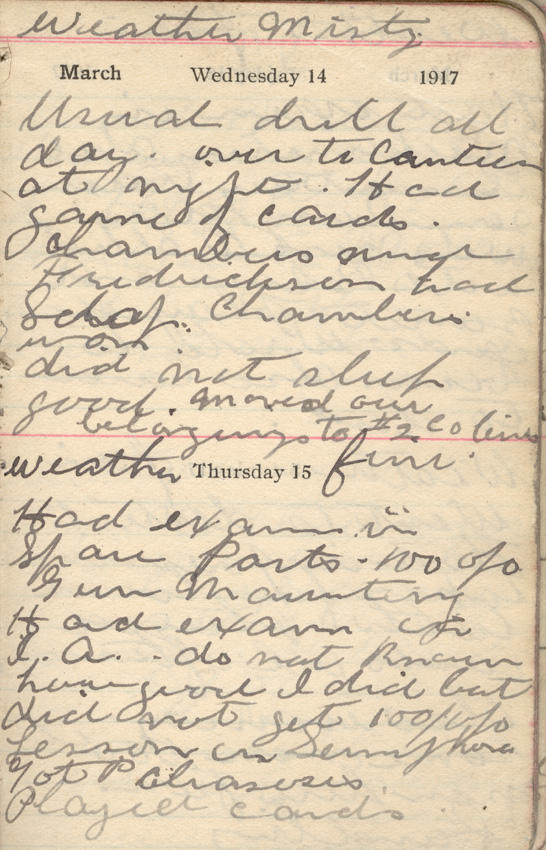 Weather Misty
March Wednesday 14 1917
Usual drill all
day. over to Canteen
at night. Had
game of cards.
Chambers and
Fredrickson had
Scrap. Chambers
won
did not sleep
good. Moved our
belongings to #2 Co lines
Weather Thursday 15 fine.
Had exam in
Spare Parts - 100 o/o
Gun Mounting
Had exam in
I. A. - do not know
how good I did but
did not get 100 o/o
Lesson in Semaphore
Got P
Played cards